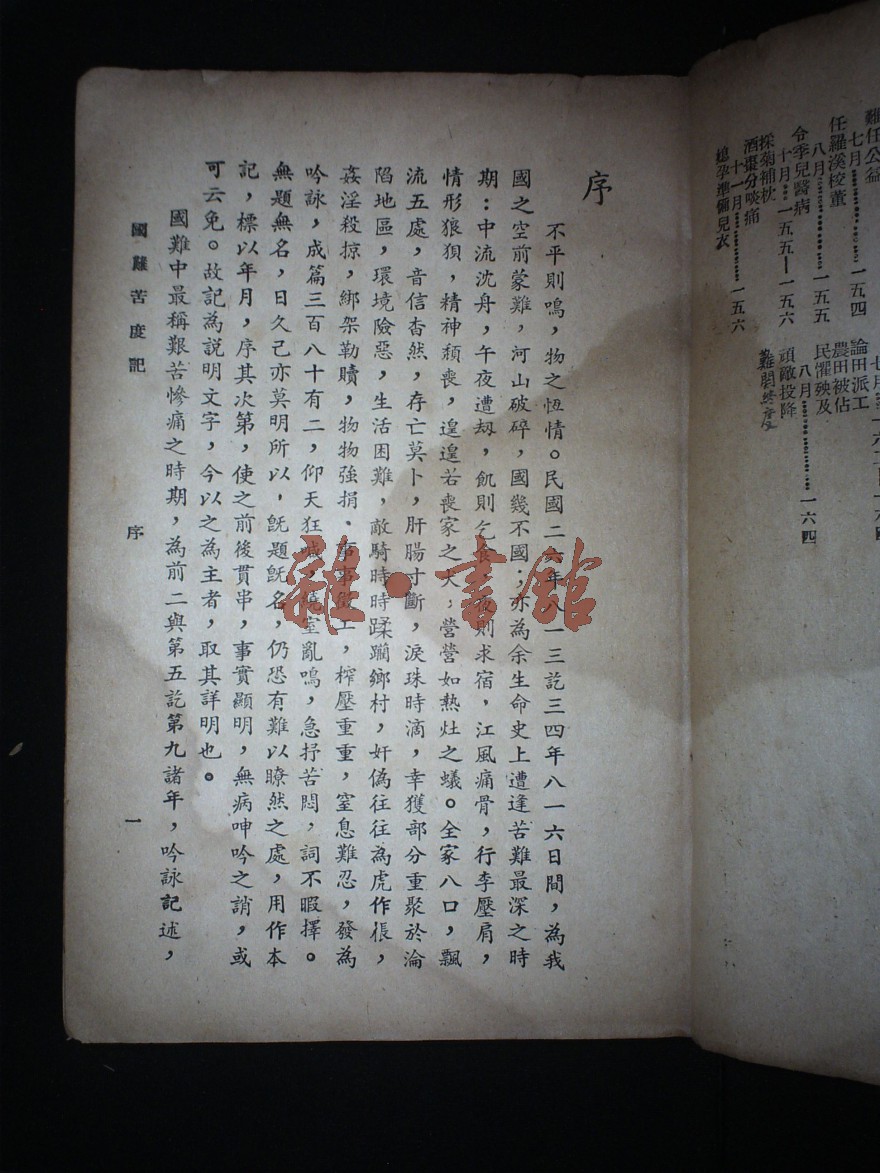 難任公益
七月………一五四
任羅溪校董
八月………一五五
令季兒醫病
十月…一五五—一五六
採菊補枕
酒棗分啖痛
十一月………一五六
媳孕準備兒衣
論田派工
農田被佔
民懼殃及
八月………一六四
頑敵投降
難關終度
序
不平則鳴，物之恆情。民國二六年八一三訖三四年八一六日間，為我
國之空前蒙難，河山破碎，國幾不國；亦為余生命史上遭逢苦難最深之時
期：中流沈舟，午夜遭刼，飢則乞食，夜則求宿，江風痛骨，行李壓肩，
情形狼狽，精神頹喪，遑遑若喪家之犬，營營如熱灶之蟻。全家八口，飄
流五處，音信杳然，存亡莫卜，肝腸寸斷，淚珠時滴，幸獲部分重聚於淪
陷地區，環境險惡，生活困難，敵騎時時蹂躝鄉村，奸偽往往為虎作倀，
姦淫殺掠，綁架勒贖，物物強捐，事事做工，榨壓重重，窒息難忍，發為
吟詠，成篇三百八十有二，仰天狂喊，繞室亂鳴，急抒苦悶，詞不暇擇。
無題無名，日久己亦莫明所以，旣題旣名，仍恐有難以瞭然之處，用作本
記，標以年月，序其次第，使之前後貫串，事實顯明，無病呻吟之誚，或
可云免。故記為説明文字，今以之為主者，取其詳明也。
國難中最稱艱苦慘痛之時期，為前二與第五訖第九諸年，吟詠記述，
國難苦度記　序　一
雜·書館